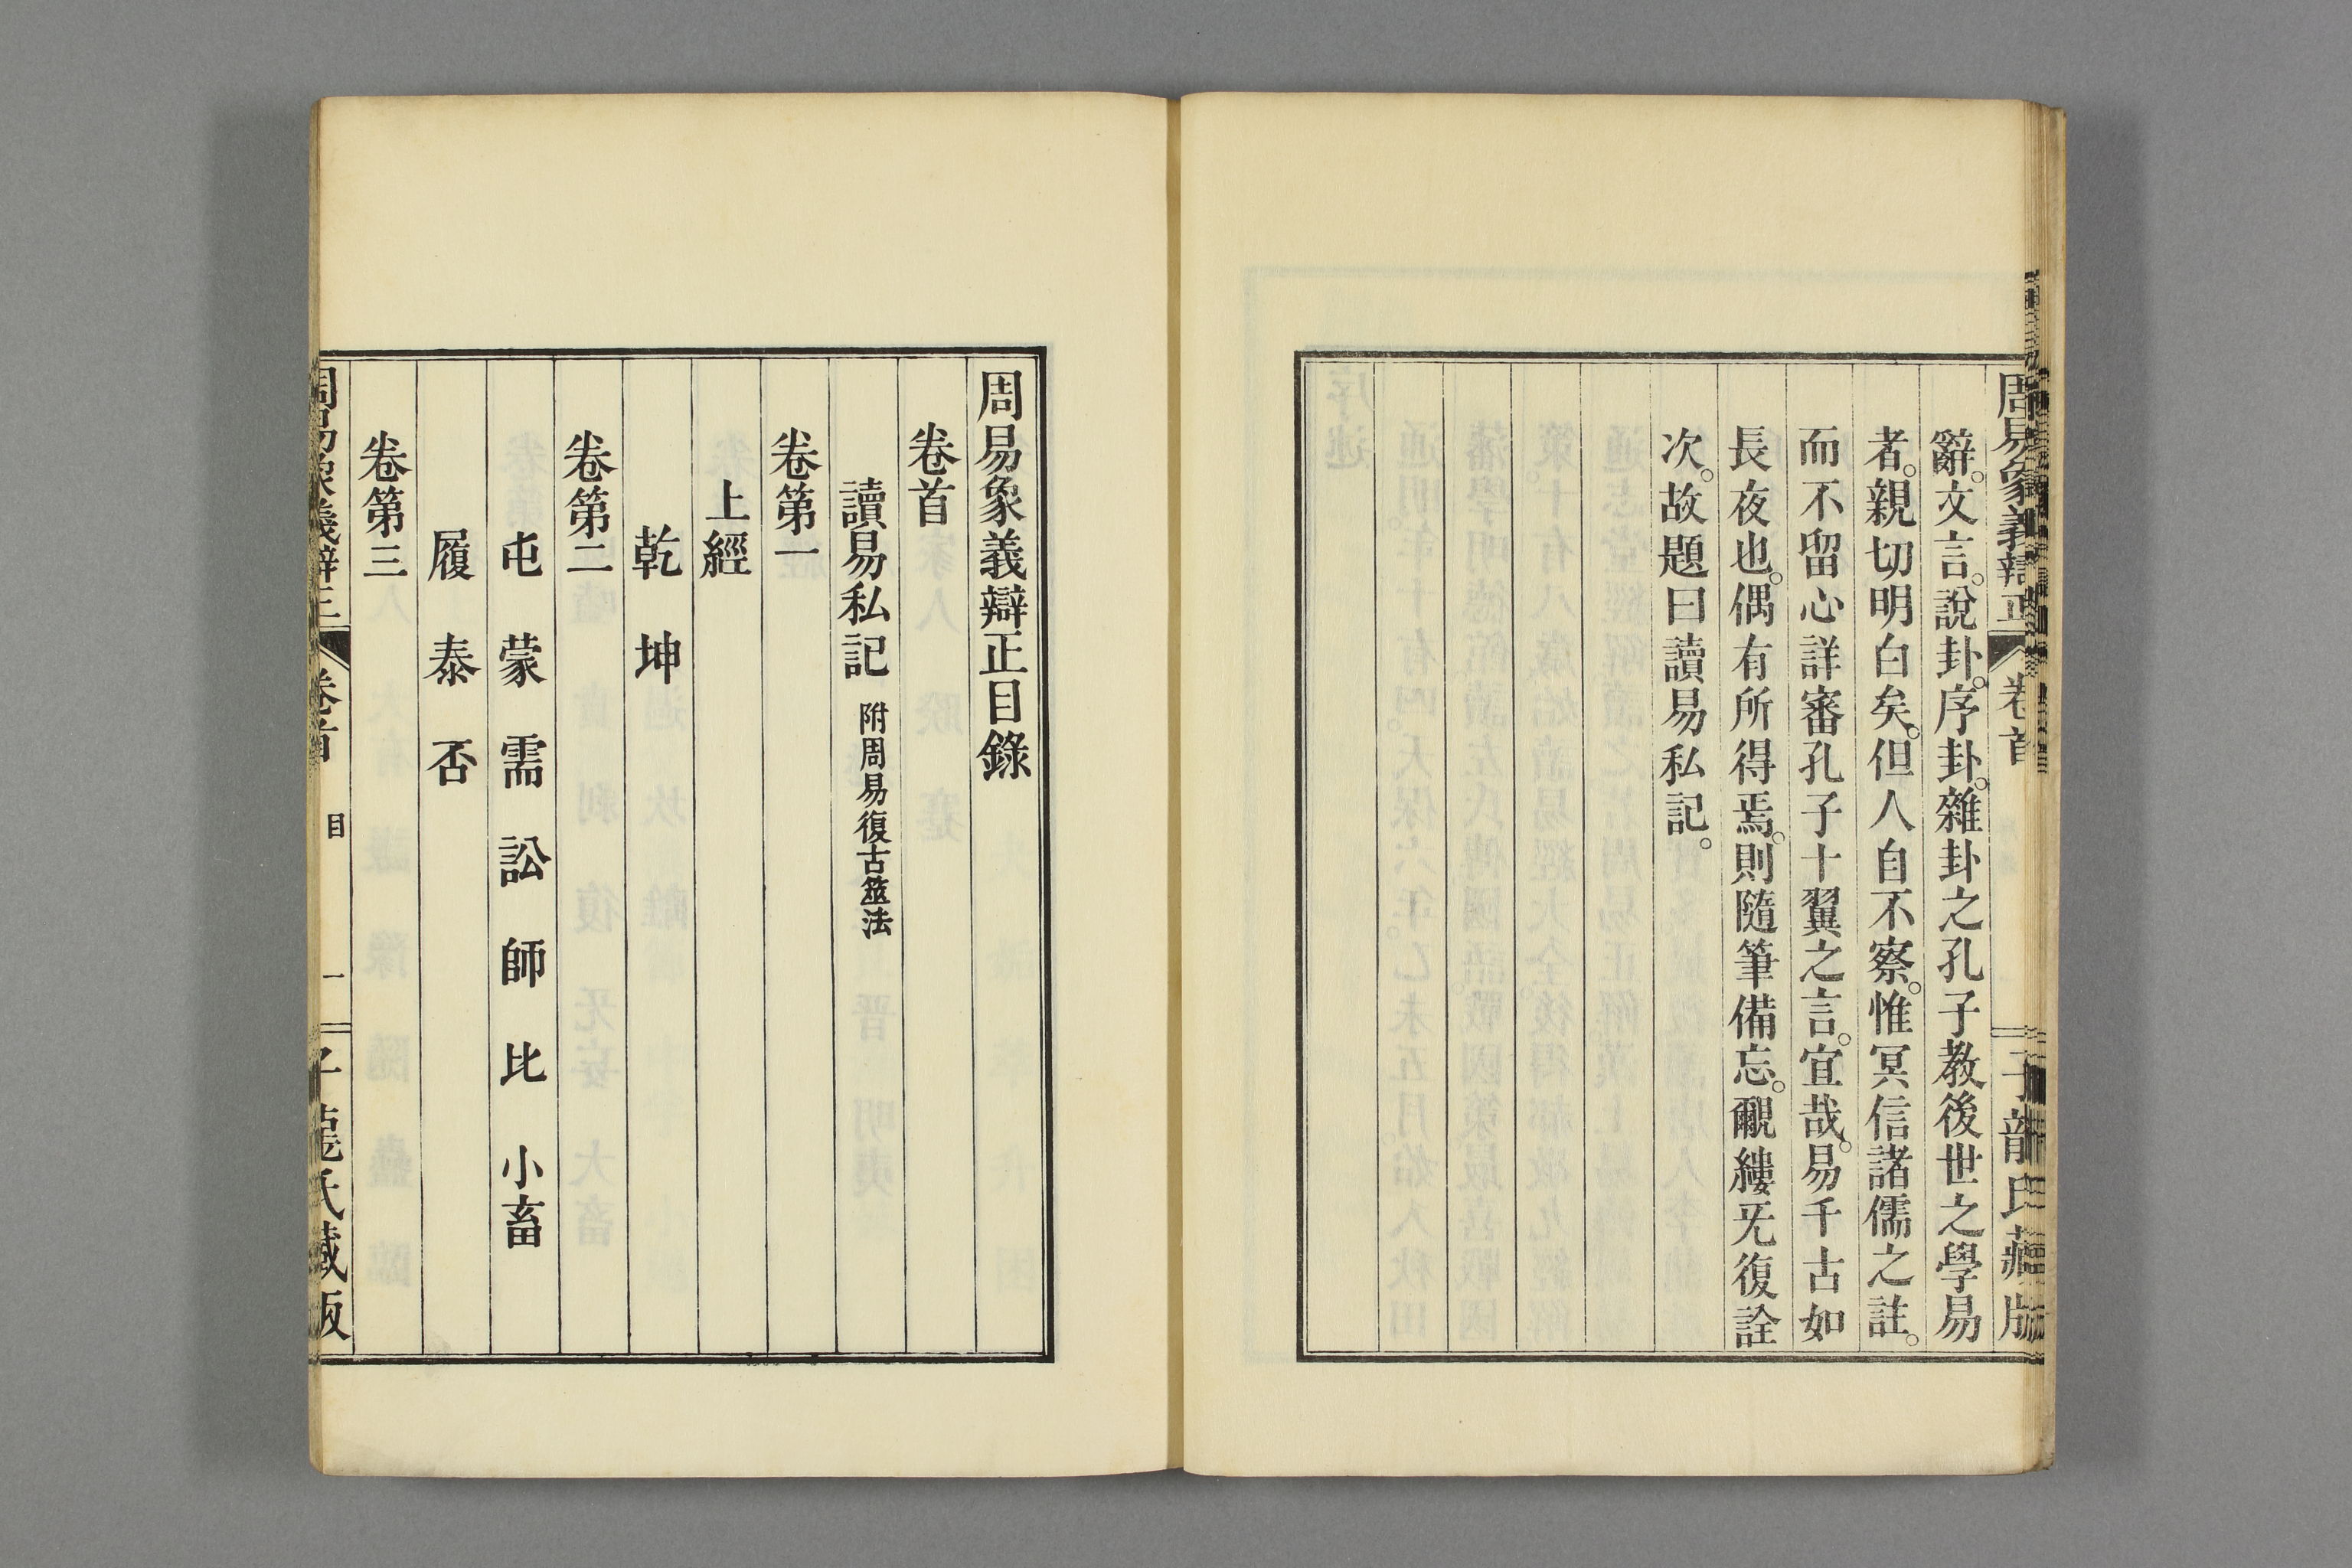 周易象義辯正 卷首 子龍氏藏版
辭。文言。說卦。序卦。雜卦之孔子教後世之學易
者。親切明白矣。但人自不察。惟冥信諸儒之註。
而不留心詳審孔子十翼之言。宜哉。易千古如
長夜也。偶有所得焉。則隨筆備忘。覼縷旡復詮
次。故題曰讀易私記。
周易象義辯正目錄
卷首
讀易私記 附周易復古筮法
卷第一
上經
乾 坤
卷第二
屯 蒙 需 訟 師 比 小畜
履 泰 否
卷第三
周易象義辯正 卷首 目 一 子龍氏藏版